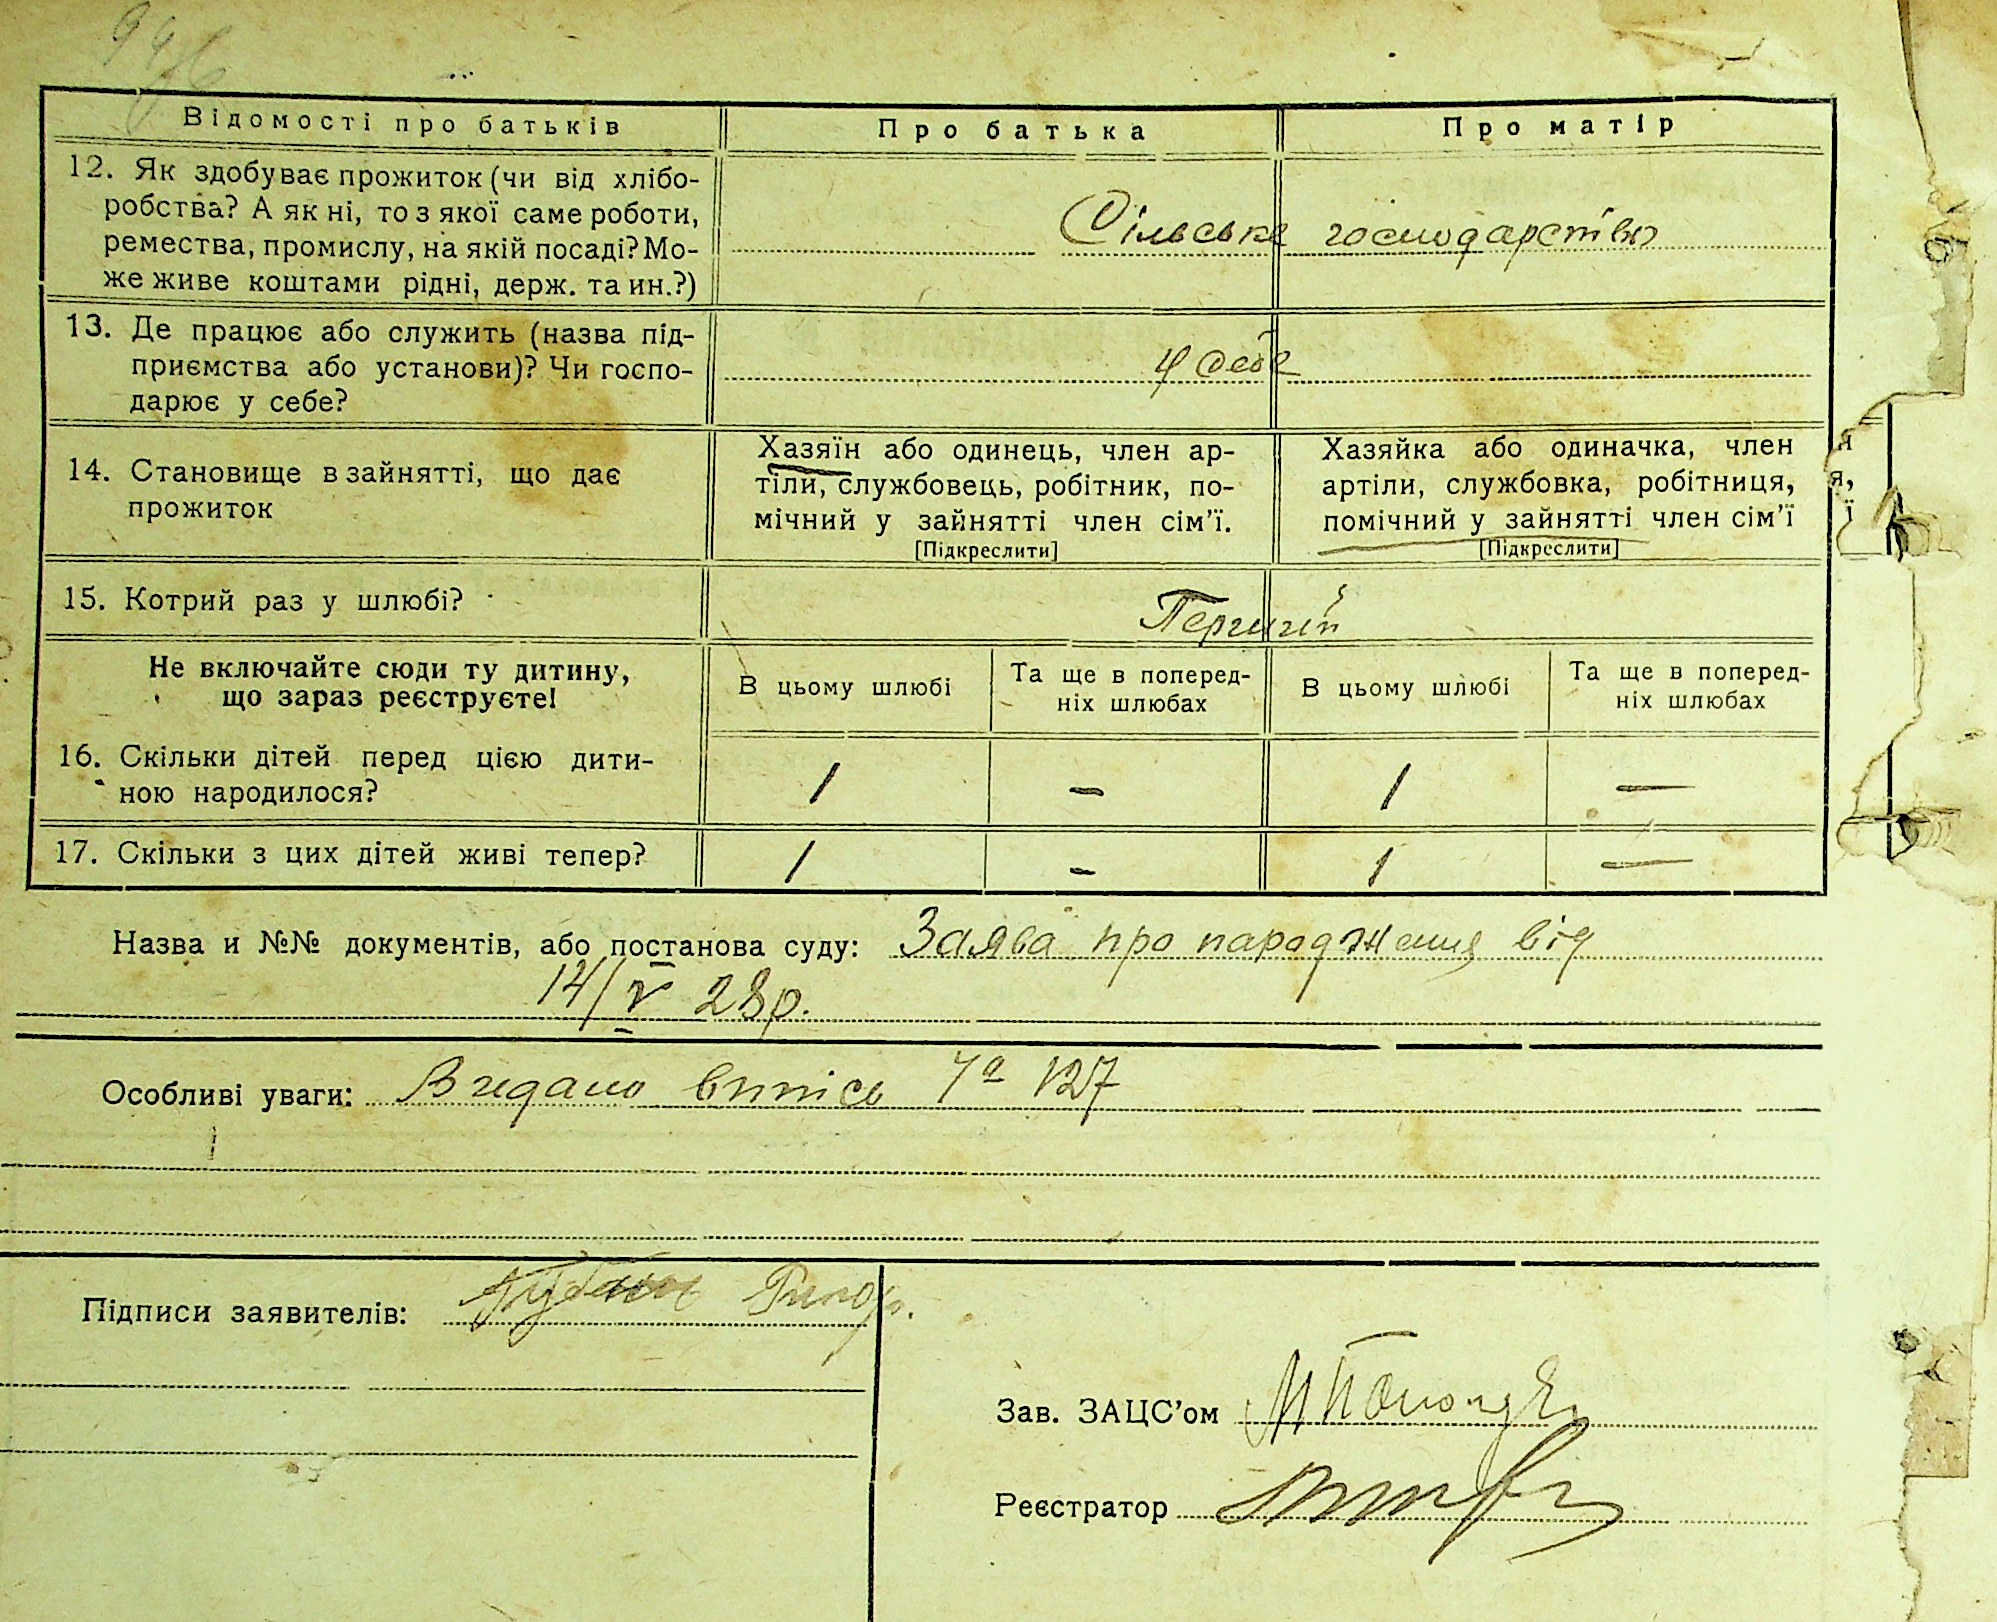 Відомості про батьків
Про батька
Про матір
12. Як здобуває прожиток (чи від хлібо-
робства? А як ні, то з якої саме роботи,
ремества, промислу, на якій посаді? Мо-
же живе коштами рідні, держ. та ин.?)
Сільське господарство
13. Де працює або служить (назва під-
приємства або установи)? Чи госпо-
дарює у себе?
У себе
14. Становище в зайнятті, що дає
прожиток
Хазяїн або одинець, член ар-
тіли, службовець, робітник, по-
мічний у зайнятті член сім'ї.
[Підкреслити]
Хазяйка або одиначка, член
артіли, службовка, робітниця,
помічний у зайнятті член сім'ї
[Підкреслити]
я
я,
ї
15. Котрий раз у шлюбі?
Не включайте сюди ту дитину,
що зараз реєструєте!
В цьому шлюбі
Та ще в поперед-
ніх шлюбах
В цьому шлюбі
Та ще в поперед-
ніх шлюбах
16. Скільки дітей перед цією дити-
ною народилося?
1 — 1 —
17. Скільки з цих дітей живі тепер?
1 — 1 —
Назва и №№ документів, або постанова суду: Заява про народження від
14/V 28р.
Особливі уваги: Видано випись № 127
Підписи заявителів:
Зав. ЗАЦС'ом
Реєстратор